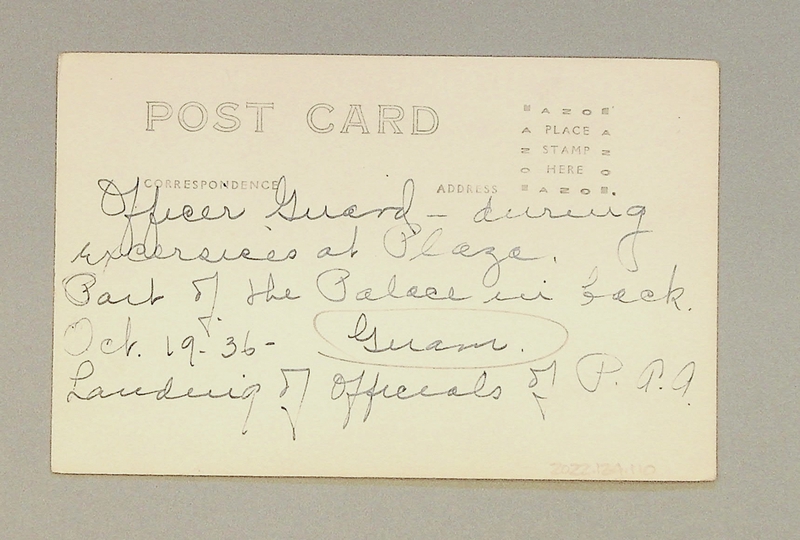 POST CARD
AZO
A PLACE A
Z STAMP Z
O HERE O
AZO
CORRESPONDENCE
ADDRESS
Officer Guard - during
excersices at Plaza.
Part of the Palace in back.
Oct. 19-36- Guam.
Landing of Officials of P. A. A.